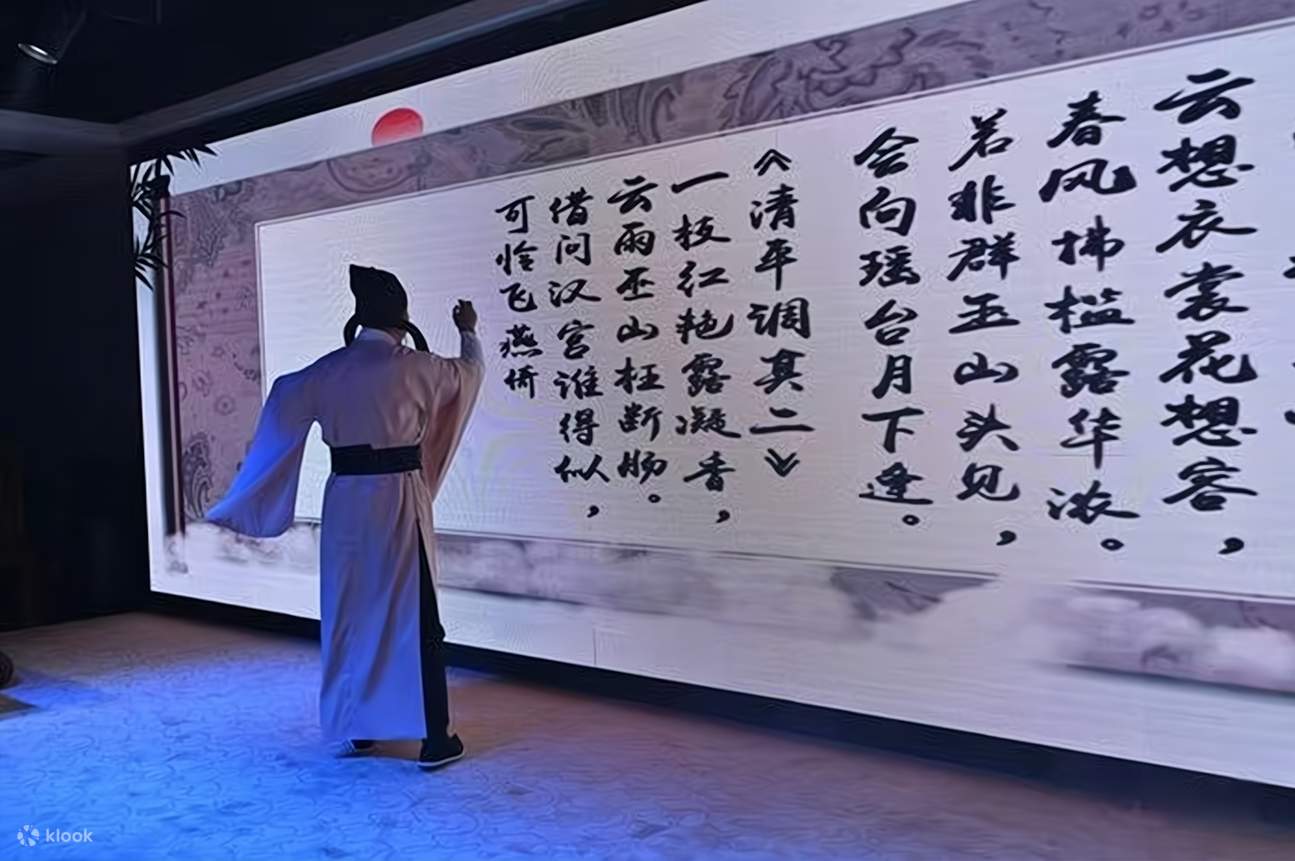 云想衣裳花想容，
春风拂槛露华浓。
若非群玉山头见，
会向瑶台月下逢。
《清平调其二》
一枝红艳露凝香，
云雨巫山枉断肠。
借问汉宫谁得似，
可怜飞燕倚
klook